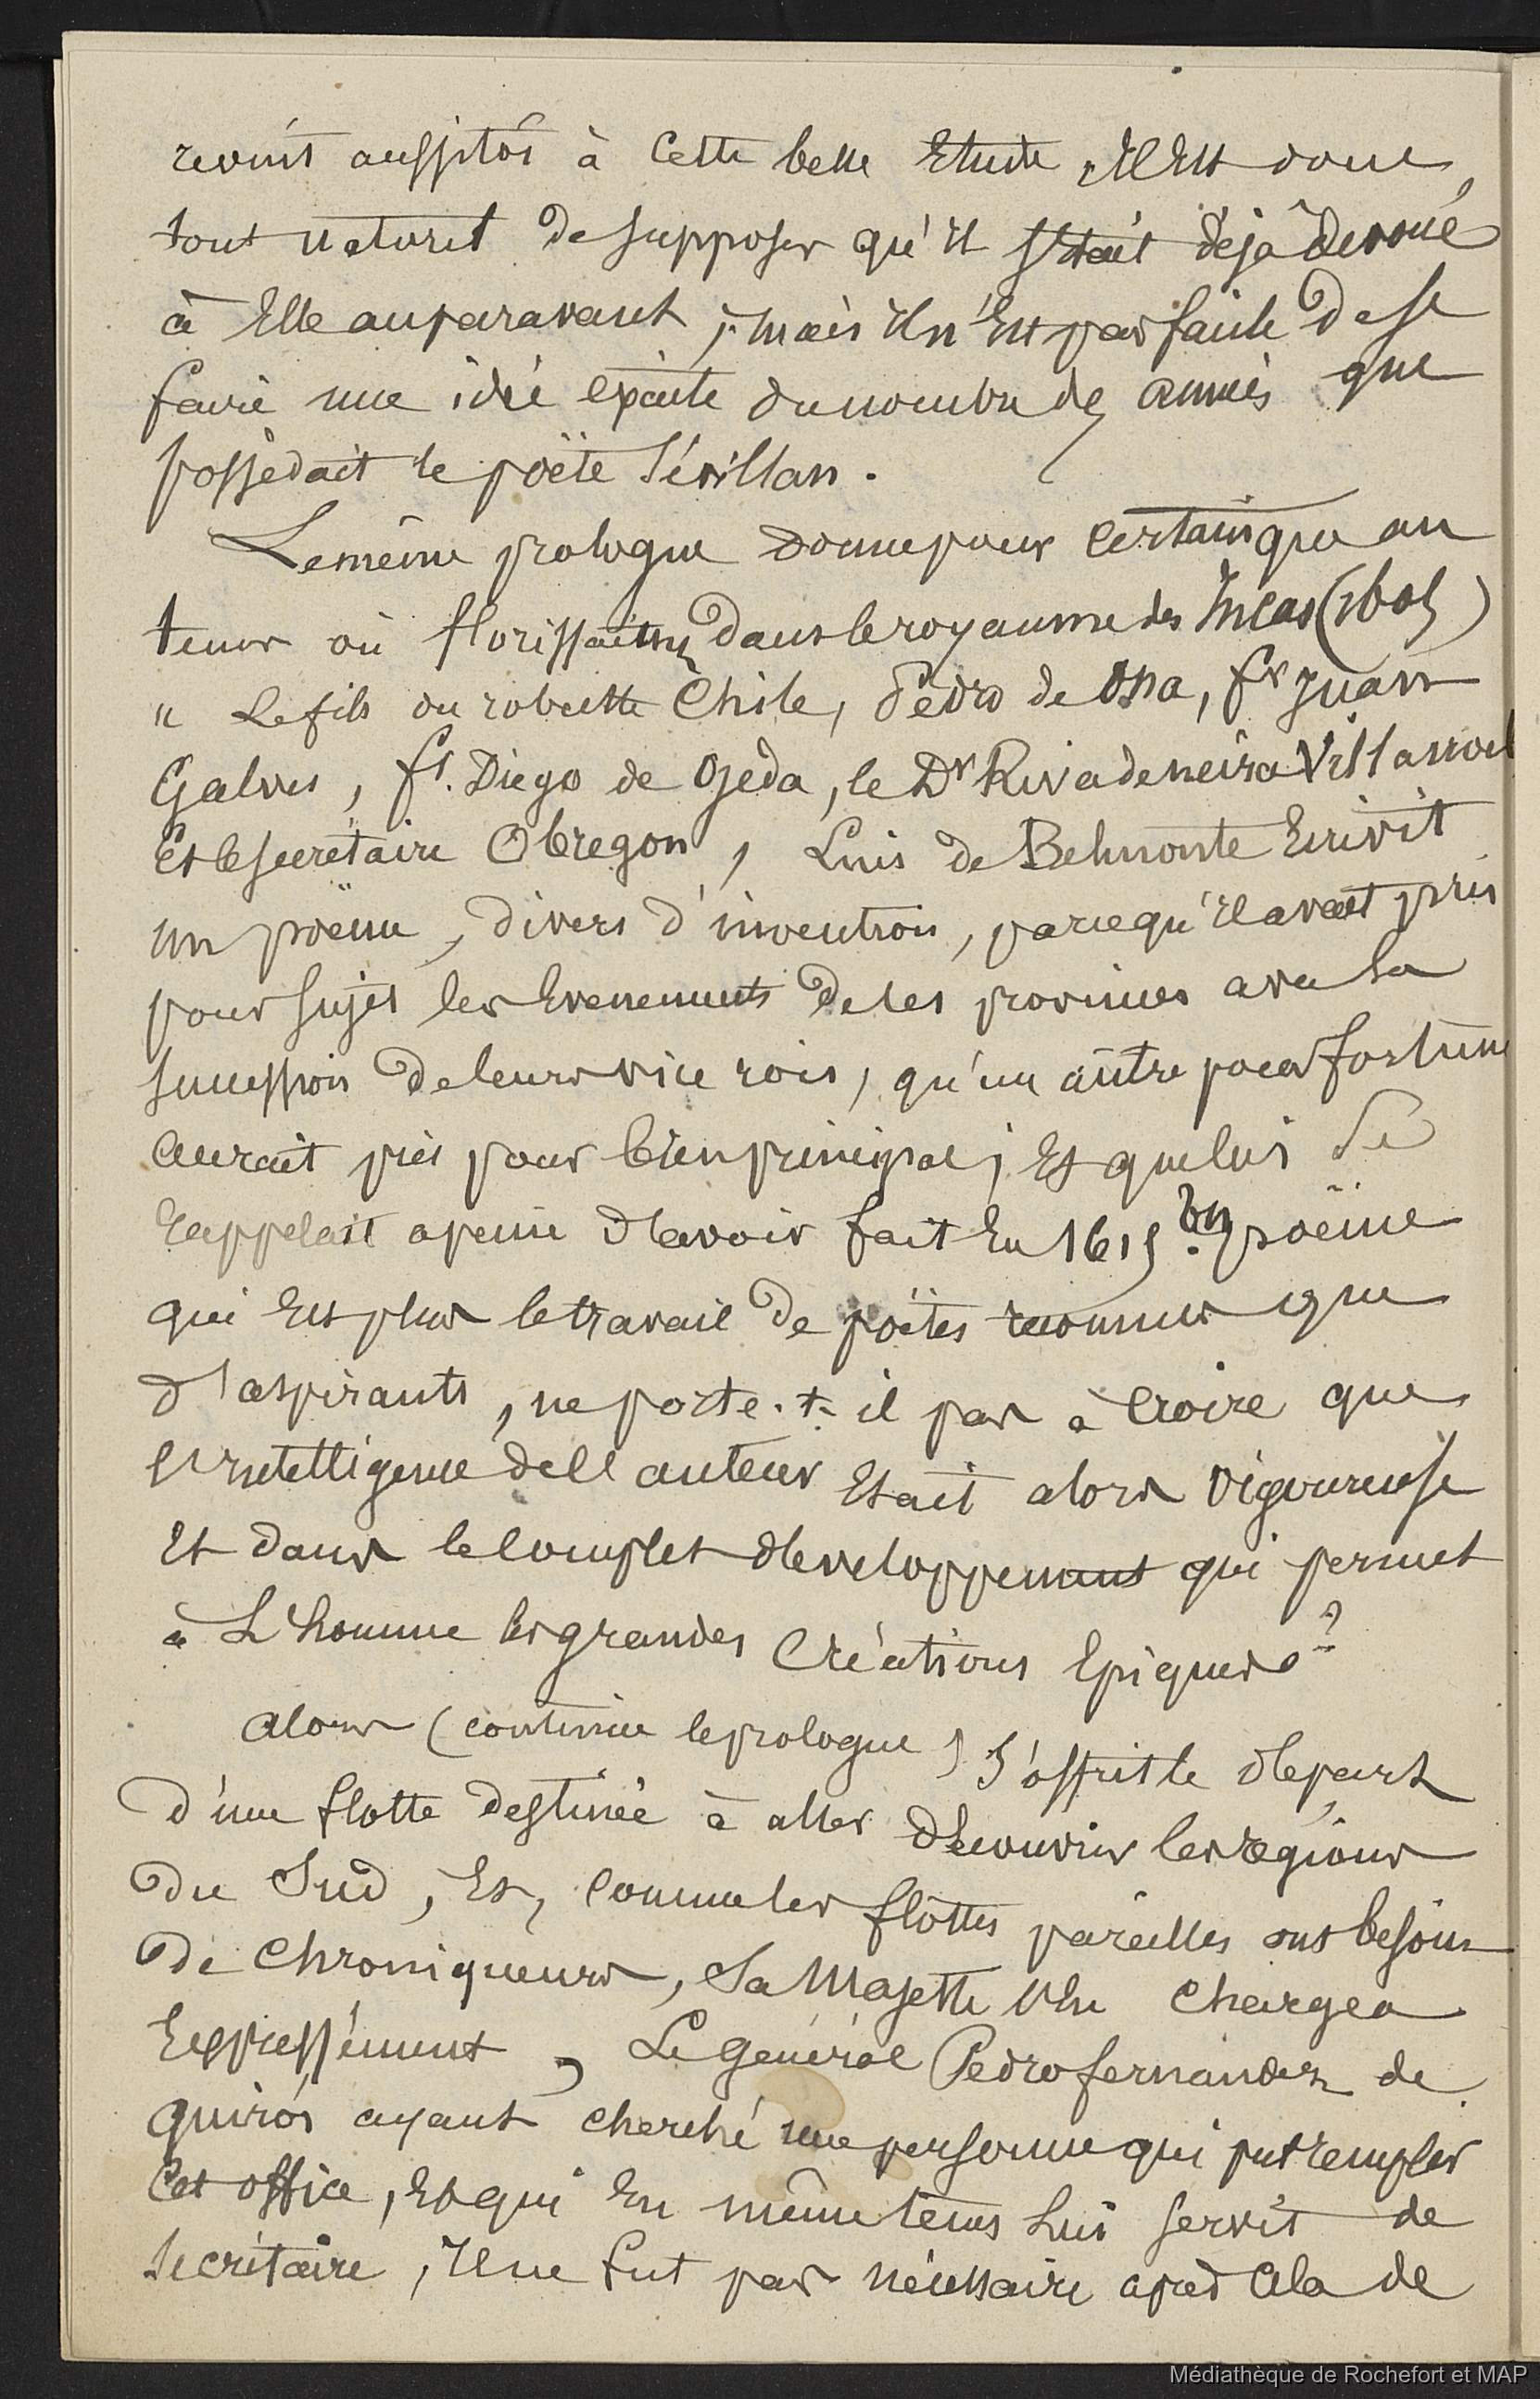 revint aussitôt à cette belle Etude, Il Est donc,
tout naturel de supposer qu'il s'était déjà dévoué
à Elle auparavant ; mais il n'Est pas facile de se
faire une idée exacte du nombre des années que
possédait le poëte Sévillan.
Le même prologue donne pour certain que au
tems où florissaient dans le royaume des Incas (1605)
" Le fils du robuste Chile, Pedro de Oña, fr Juan
Galves, fr. Diego de Ojeda, le Dr Rivadeneira Villarroel
Et le secrétaire Obregon, Luis de Belmonte Ecrivit
un poëme, divers d'invention, parce qu'il avait pris
pour sujet les Evenements de ces provinces avec la
succession de leurs vice rois, qu'un autre pour fortune
aurait pris pour bien principal ; Et que lui se
rappelait a peine d'avoir fait En 1615. Un poëme
qui Est plus le travail de poëtes reconnus que
d'aspirants, ne porte-t-il pas à croire que
l'intelligence de l'auteur Etait alors vigoureuse
Et dans le complet développement qui permet
à L'homme les grandes Créations Epiques ?
Alors (continue le prologue) s'offrit le départ
d'une flotte destinée à aller découvrir les régions
du Sud, Et, comme les flottes pareilles ont besoin
de Chroniqueurs, Sa Majesté l'En chargea
Expressément, Le général Pedro fernandez de
quirós ayant cherché une personne qui put remplir
Cet office, Et qui En même tems lui servit de
secrétaire, Il ne fut pas nécessaire après cela de
Médiathèque de Rochefort et MAP